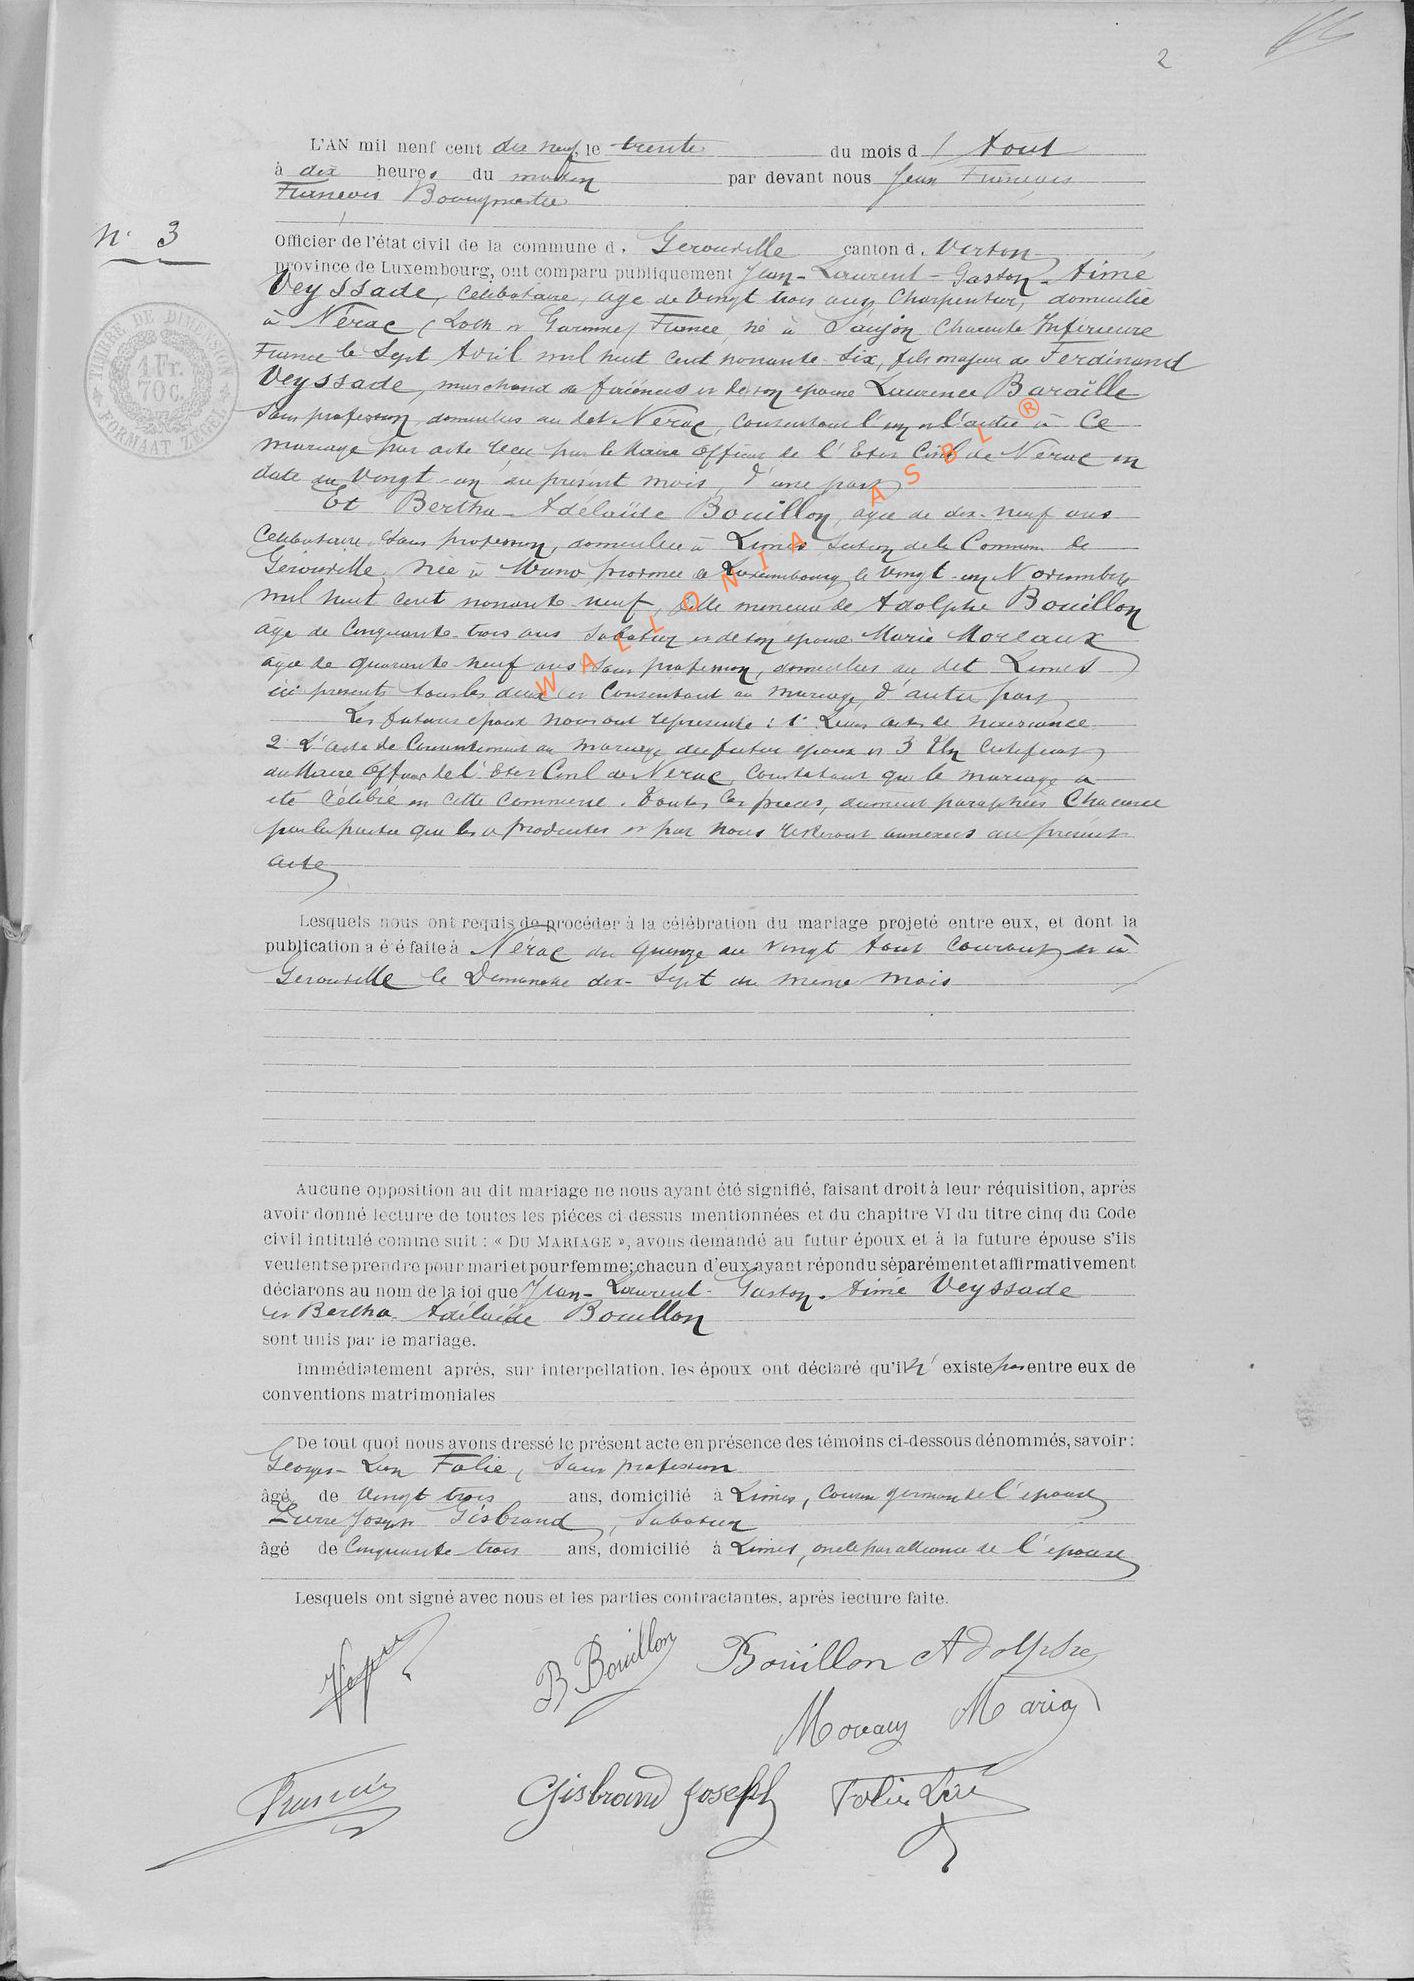 2
L'AN mil neuf cent dix neuf, le trente du mois d'Aout
à dix heures du matin par devant nous Jean François
François Bourgmestre
N° 3
Officier de l'état civil de la commune d. Gerouville canton d. Virton
province de Luxembourg, ont comparu publiquement Jean-Laurent-Gaston-Aimé
Veyssade, célibataire, agé de vingt trois ans, Charpentier, domicilié
à Nérac (Loth et Garonne) France, né à Saujon Charente Inférieure
France le Sept Avril mil huit cent nonante six, fils majeur de Ferdinand
Veyssade, marchand de faiences et de son epouse Laurence Baraille
sans profession, domiciliés au dit Nérac, consentant l'un et l'autre à ce
mariage par acte reçu par le Maire officier de l'Etat Civil de Nérac en
date du vingt-un du présent mois, d'une part
Et Bertha-Adélaïde Bouillon, agée de dix-neuf ans
Célibataire, sans profession, domiciliée à Limes Section de la Commune de
Gérouville, née à Muno province de Luxembourg le vingt-un Novembre
mil huit cent nonante-neuf, fille mineure de Adolphe Bouillon
âgé de cinquante-trois ans Sabotier et de son épouse Marie Moreaux
âgée de quarante neuf ans sans profession, domiciliés au dit Limes
ici présents tous les deux et consentant au mariage, d'autre part
Les futurs epoux nous ont représenté: 1° Leurs actes de naissance
2° L'acte de Consentement au mariage du futur époux et 3° Un Certificat
du Maire officier de l'Etat Civil de Nérac, constatant que le mariage a
été célébré en cette commune. Toutes ces pièces, dument paraphées chacune
par la partie qui les a produites et par nous resteront annexées au présent
acte
Lesquels nous ont requis de procéder à la célébration du mariage projeté entre eux, et dont la
publication a été faite à Nérac du quinze au vingt Aout courant et à
Gerouville le Dimanche dix-Sept du meme mois
Aucune opposition au dit mariage ne nous ayant été signifié, faisant droit à leur réquisition, après
avoir donné lecture de toutes les piéces ci dessus mentionnées et du chapitre VI du titre cinq du Code
civil intitulé comme suit : « DU MARIAGE », avons demandé au futur époux et à la future épouse s'ils
veulent se prendre pour mari et pour femme; chacun d'eux ayant répondu séparément et affirmativement
déclarons au nom de la loi que Jean-Laurent-Gaston-Aimé Veyssade
et Bertha-Adélaïde Bouillon
sont unis par le mariage.
Immédiatement après, sur interpellation, les époux ont déclaré qu'il n'existe pas entre eux de
conventions matrimoniales
De tout quoi nous avons dressé le présent acte en présence des témoins ci-dessous dénommés, savoir :
Georges-Léon Folie, Sans profession
âgé de vingt trois ans, domicilié à Limes, Cousin germain de l'épouse
Pierre Joseph Gisbrand, Sabotier
âgé de Cinquante-trois ans, domicilié à Limes, oncle par alliance de l'épouse
Lesquels ont signé avec nous et les parties contractantes, après lecture faite.
B Bouillon Bouillon Adolphe
Moreaux Maria
François Gisbrand Joseph Folie
TIMBRE DE DIMENSION
1 Fr.
70c.
FORMAAT ZEGEL
WALLONIA ASBL ®